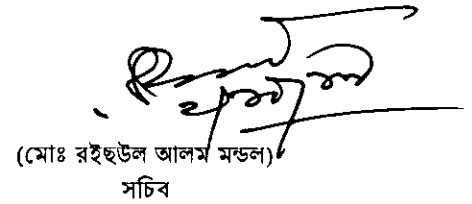 (মোঃ রইছউল আলম মন্ডল)
সচিব